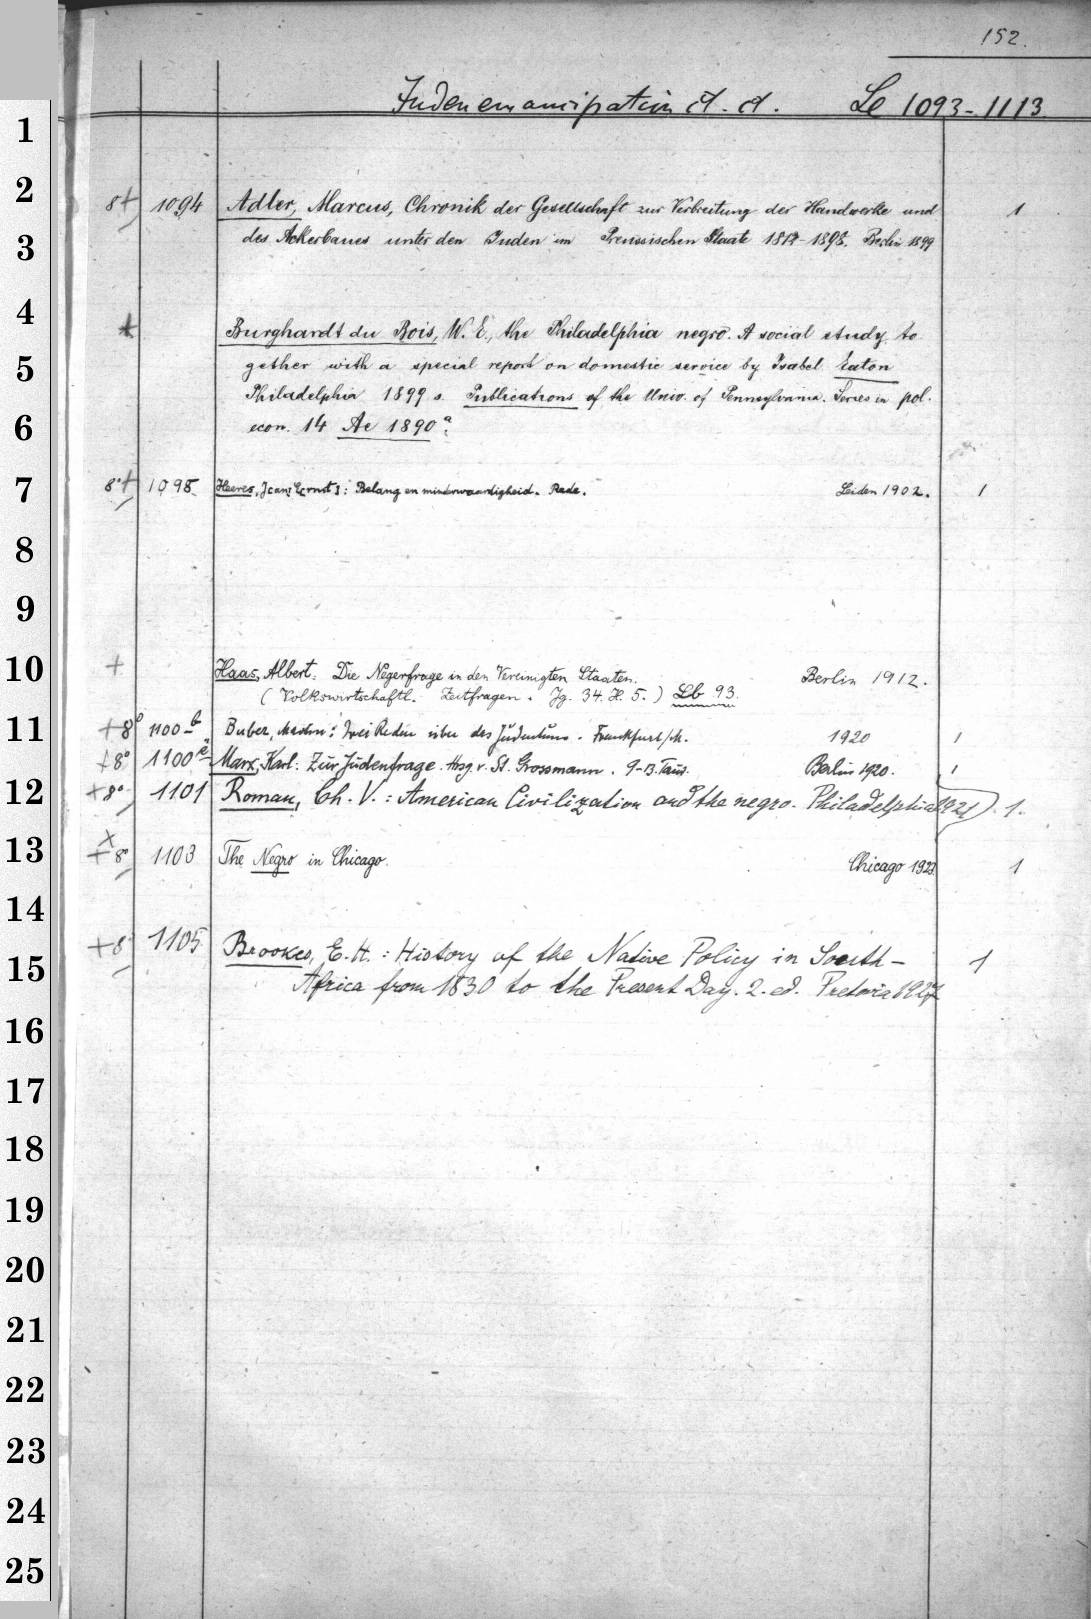 152.
Judenemancipation A. A. Le 1093-1113
1
2
8+ 1094 Adler, Marcus, Chronik der Gesellschaft zur Verbreitung der Handwerke und 1
3
des Ackerbaues unter den Juden im Preussischen Staate 1812-1898. Berlin 1899
4
+ Burghardt du Bois, W. E., the Philadelphia negro. A social study to
5
gether with a special report on domestic service by Isabel Eaton
Philadelphia 1899 s. Publications of the Univ. of Pennsylvania. Series in pol.
6
econ. 14 Ae 1890 a.
7
8°+ 1098 Heeres, J[ean] E[rnst]: Belang en minderwaardigheid. Rede. Leiden 1902. 1
8
9
10
+ Haas, Albert: Die Negerfrage in den Vereinigten Staaten. Berlin 1912.
(Volkswirtschaftl. Zeitfragen. Jg. 34. H. 5.) Lb 93.
11
+8° 1100 b Buber, Martin: Zwei Reden über das Judentum. Frankfurt/M. 1920 1
+8° 1100 Marx, Karl: Zur Judenfrage. Hrsg. v. St. Grossmann. 9-13. Taus. Berlin 1920. 1
12
+8° 1101 Roman, Ch. V.: American Civilization and the negro. Philadelphia 1921 1.
13
+8° 1103 The Negro in Chicago. Chicago 1923 1
14
+8° 1105 Brookes, E. H.: History of the Native Policy in South- 1
15
Africa from 1830 to the Present Day. 2. ed. Pretoria 1927
16
17
18
19
20
21
22
23
24
25